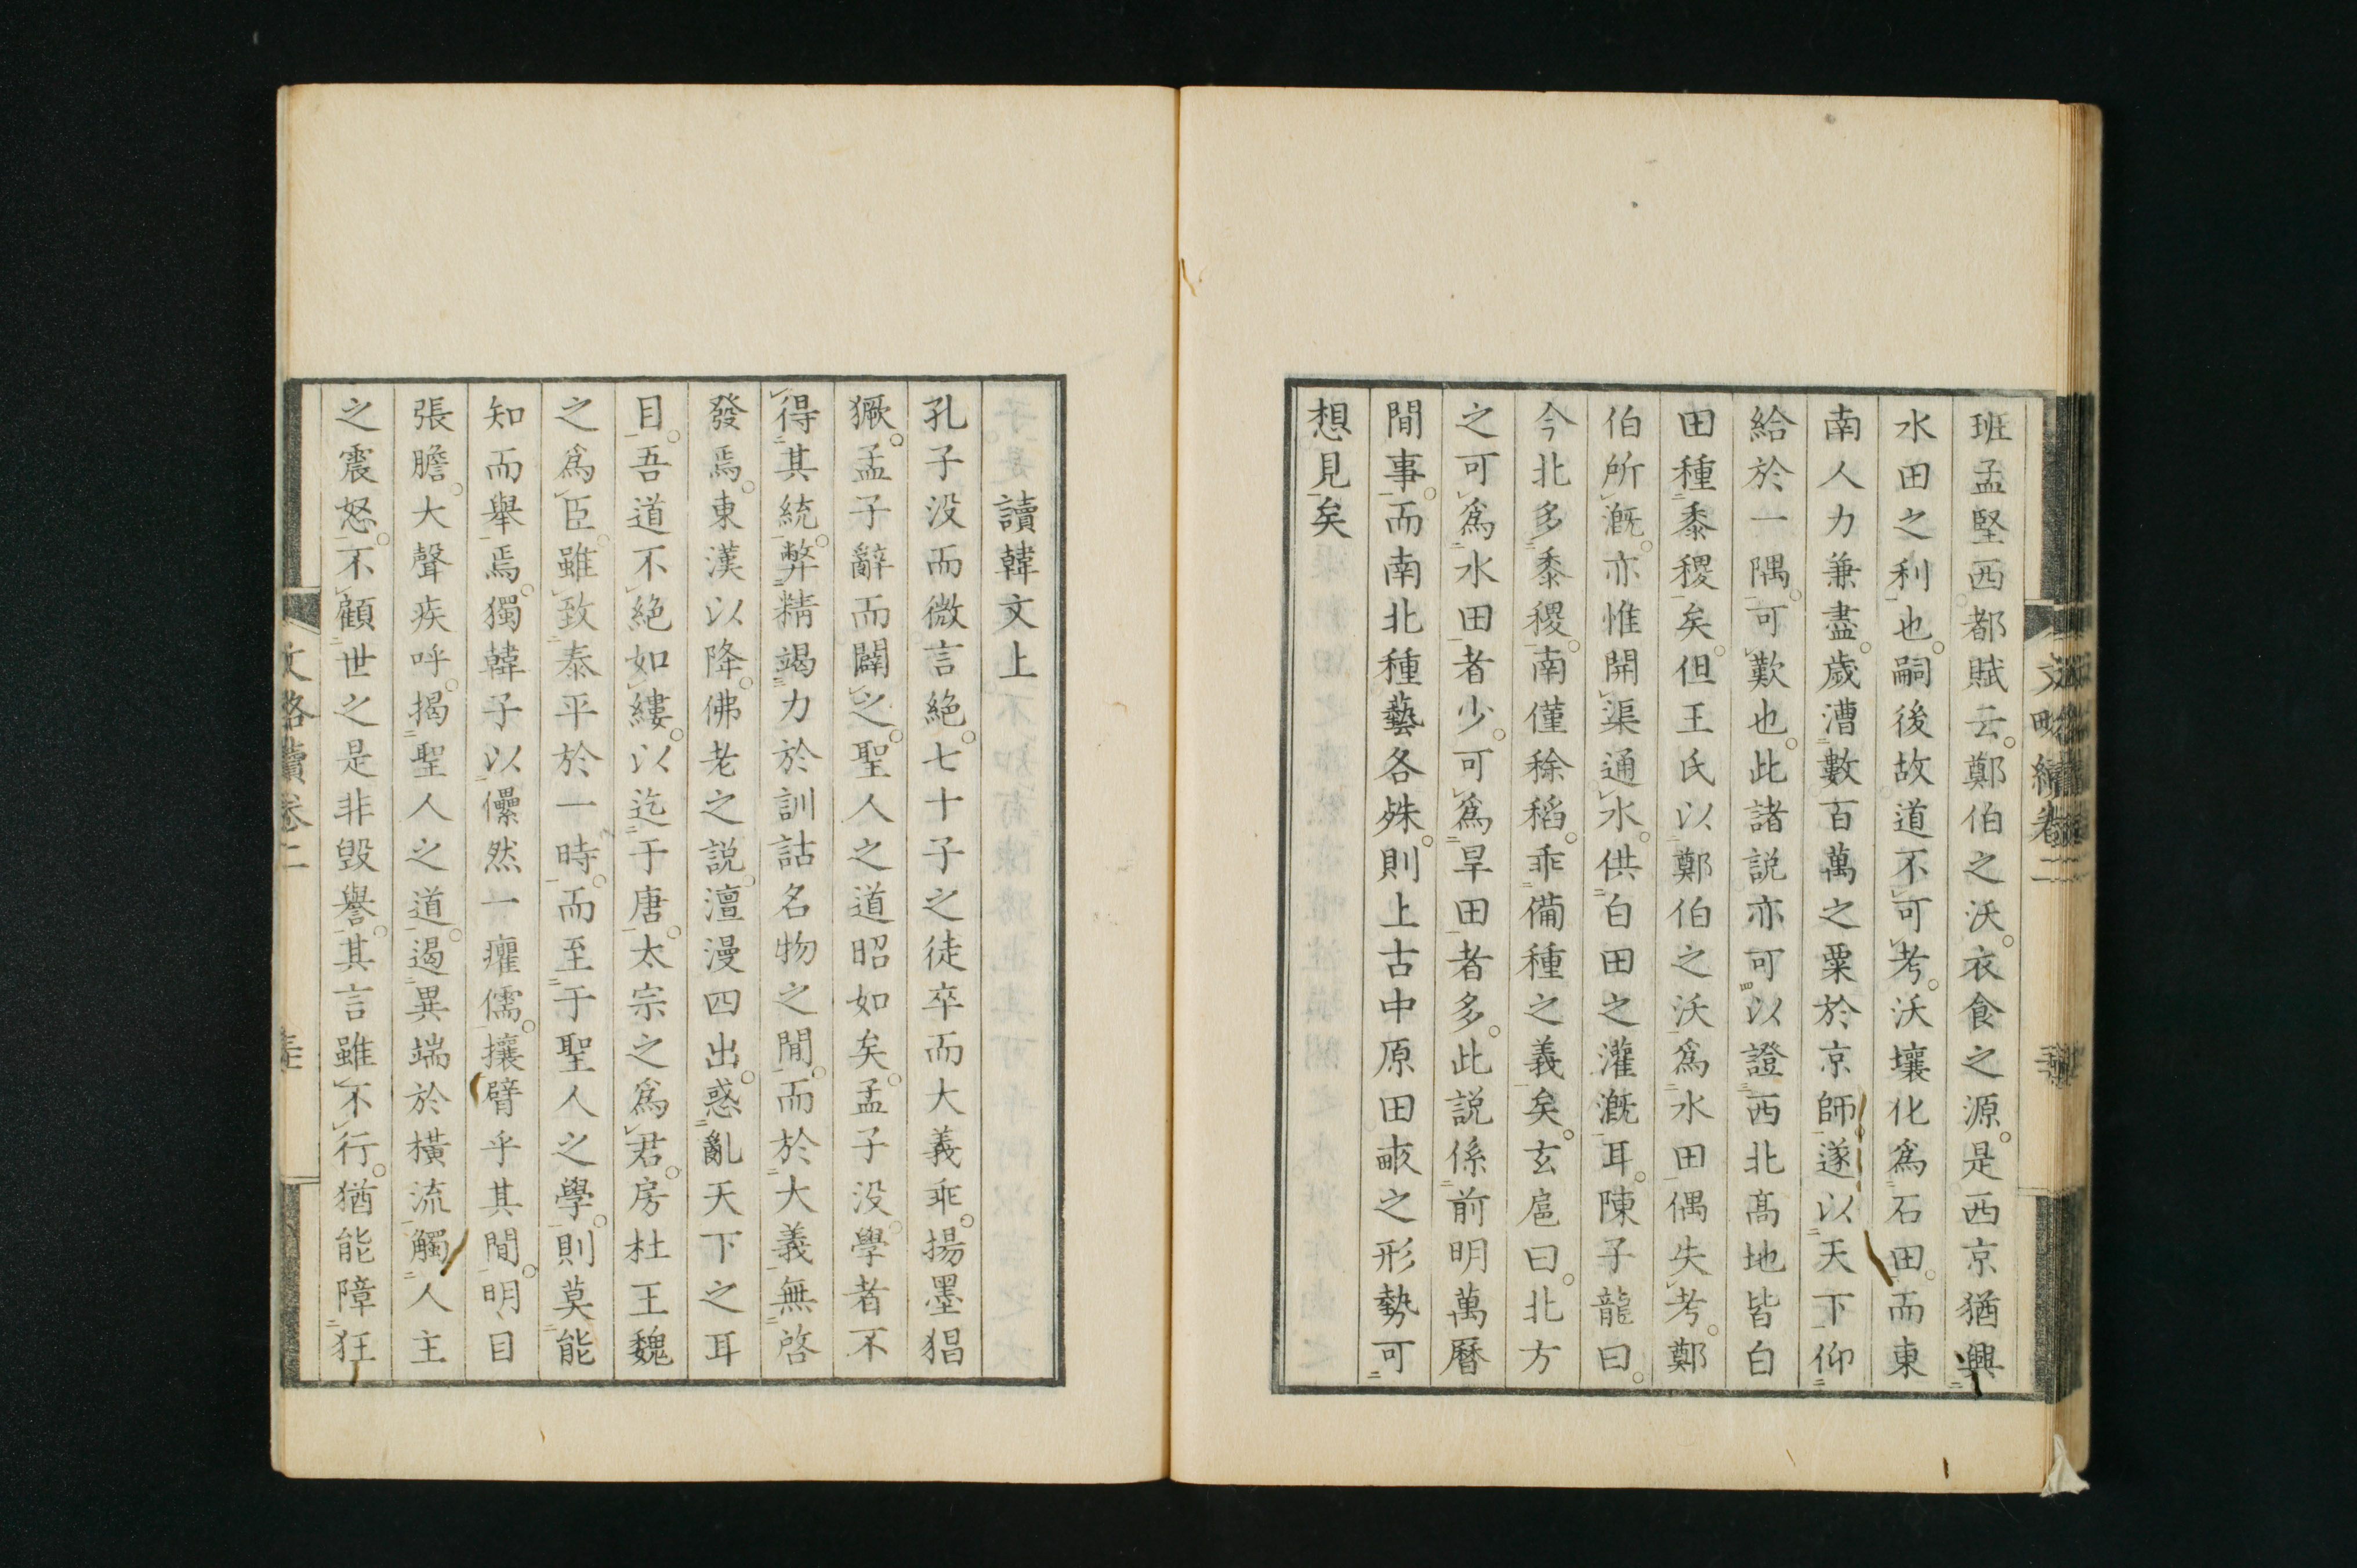 班孟堅西都賦云鄭伯之沃衣食之源是西京猶興
水田之利也嗣後故道不可考沃壤化爲石田而東
南人力兼盡歲漕數百萬之粟於京師遂以天下仰
給於一隅可歎也此諸説亦可以證西北髙地皆白
田種黍稷矣但王氏以鄭伯之沃爲水田偶失考鄭
伯所漑亦惟開渠通水供白田之灌漑耳陳子龍曰
今北多黍稷南僅稌稻乖備種之義矣玄扈曰北方
之可爲水田者少可爲旱田者多此説係前明萬曆
間事而南北種藝各殊則上古中原田畝之形勢可
想見矣
讀韓文上
孔子没而微言絶七十子之徒卒而大義乖揚墨猖
獗孟子辭而闢之聖人之道昭如矣孟子没學者不
得其統弊精竭力於訓詁名物之間而於大義無啓
發焉東漢以降佛老之説澶漫四出惑亂天下之耳
目吾道不絶如縷以迄于唐太宗之爲君房杜王魏
之爲臣雖致泰平於一時而至于聖人之學則莫能
知而舉焉獨韓子以儽然一癯儒攘臂乎其間明目
張膽大聲疾呼揭聖人之道遏異端於橫流觸人主
之震怒不顧世之是非毀譽其言雖不行猶能障狂
文略續卷二